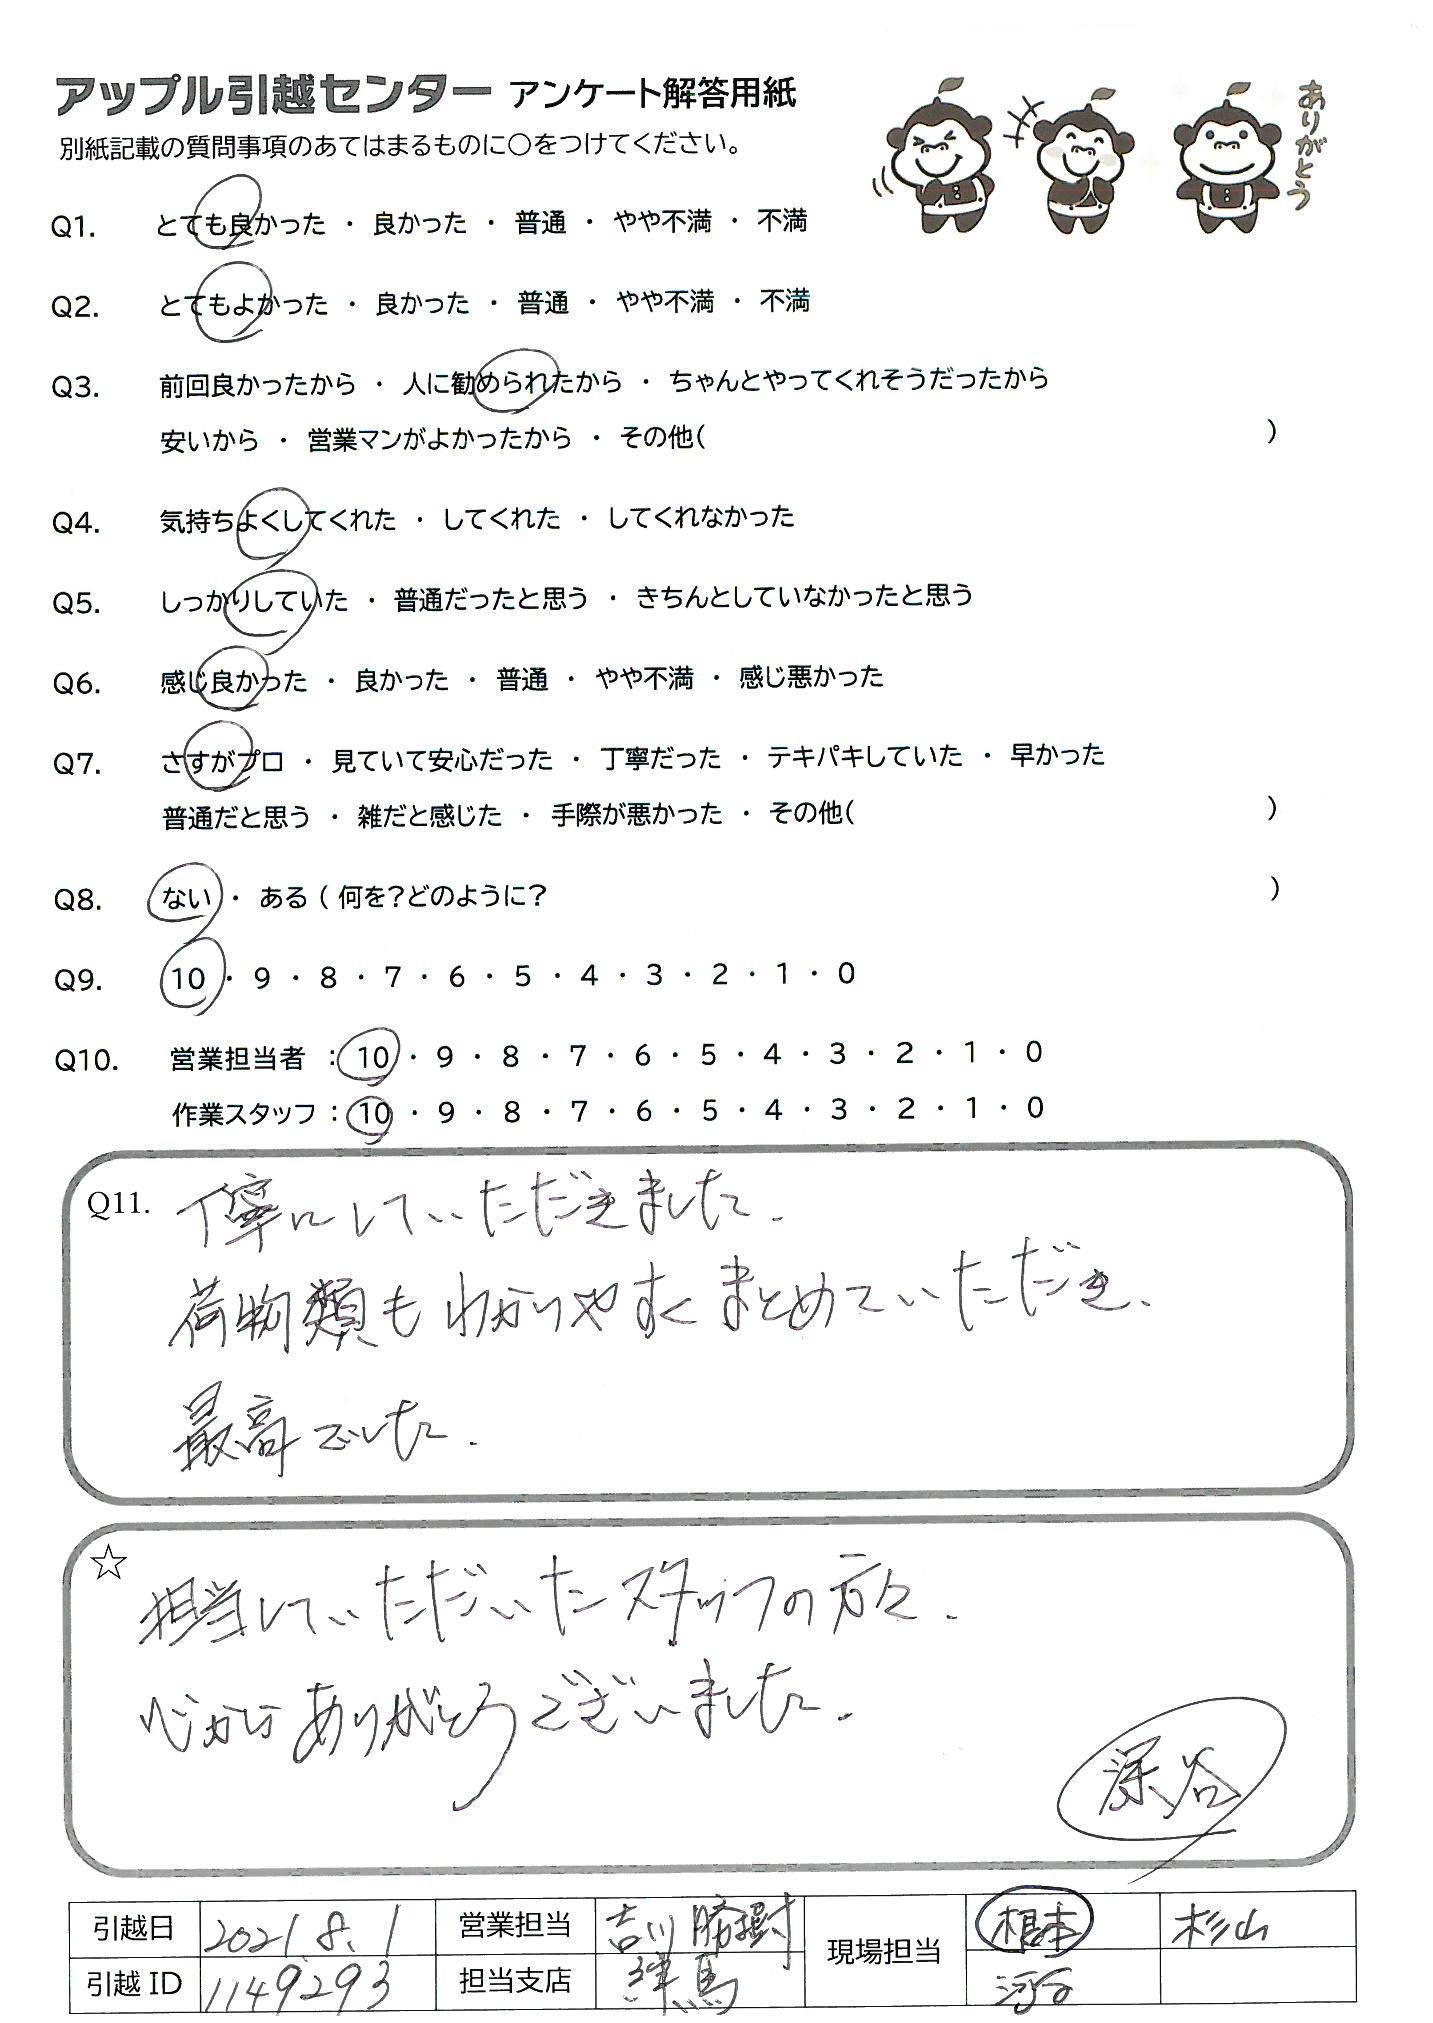 アップル引越センター アンケート解答用紙
ありがとう
別紙記載の質問事項のあてはまるものに○をつけてください。
Q1. とても良かった ・ 良かった ・ 普通 ・ やや不満 ・ 不満
Q2. とてもよかった ・ 良かった ・ 普通 ・ やや不満 ・ 不満
Q3. 前回良かったから ・ 人に勧められたから ・ ちゃんとやってくれそうだったから
安いから ・ 営業マンがよかったから ・ その他( )
Q4. 気持ちよくしてくれた ・ してくれた ・ してくれなかった
Q5. しっかりしていた ・ 普通だったと思う ・ きちんとしていなかったと思う
Q6. 感じ良かった ・ 良かった ・ 普通 ・ やや不満 ・ 感じ悪かった
Q7. さすがプロ ・ 見ていて安心だった ・ 丁寧だった ・ テキパキしていた ・ 早かった
普通だと思う ・ 雑だと感じた ・ 手際が悪かった ・ その他( )
Q8. ない ・ ある ( 何を?どのように? )
Q9. 10 ・ 9 ・ 8 ・ 7 ・ 6 ・ 5 ・ 4 ・ 3 ・ 2 ・ 1 ・ 0
Q10. 営業担当者 : 10 ・ 9 ・ 8 ・ 7 ・ 6 ・ 5 ・ 4 ・ 3 ・ 2 ・ 1 ・ 0
作業スタッフ : 10 ・ 9 ・ 8 ・ 7 ・ 6 ・ 5 ・ 4 ・ 3 ・ 2 ・ 1 ・ 0
Q11. 丁寧にしていただきました.
荷物類もわかりやすくまとめていただき、
最高でした.
☆
担当していただいたスタッフの方々.
心からありがとうございました.
深谷
引越日 2021.8.1 営業担当 吉川 勝樹 現場担当 根本 杉山
引越 ID 1149293 担当支店 群馬